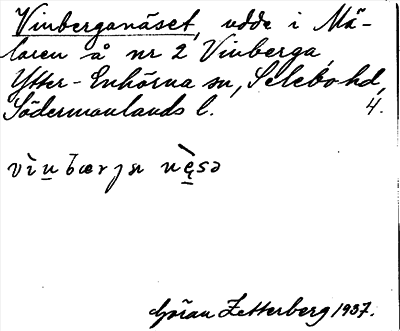 Vinberganäset, udde i Mä-
laren å nr 2 Vinberga,
Ytter-Enhörna sn, Selebo hd,
Södermanlands l. 4.
Göran Zetterberg 1937.